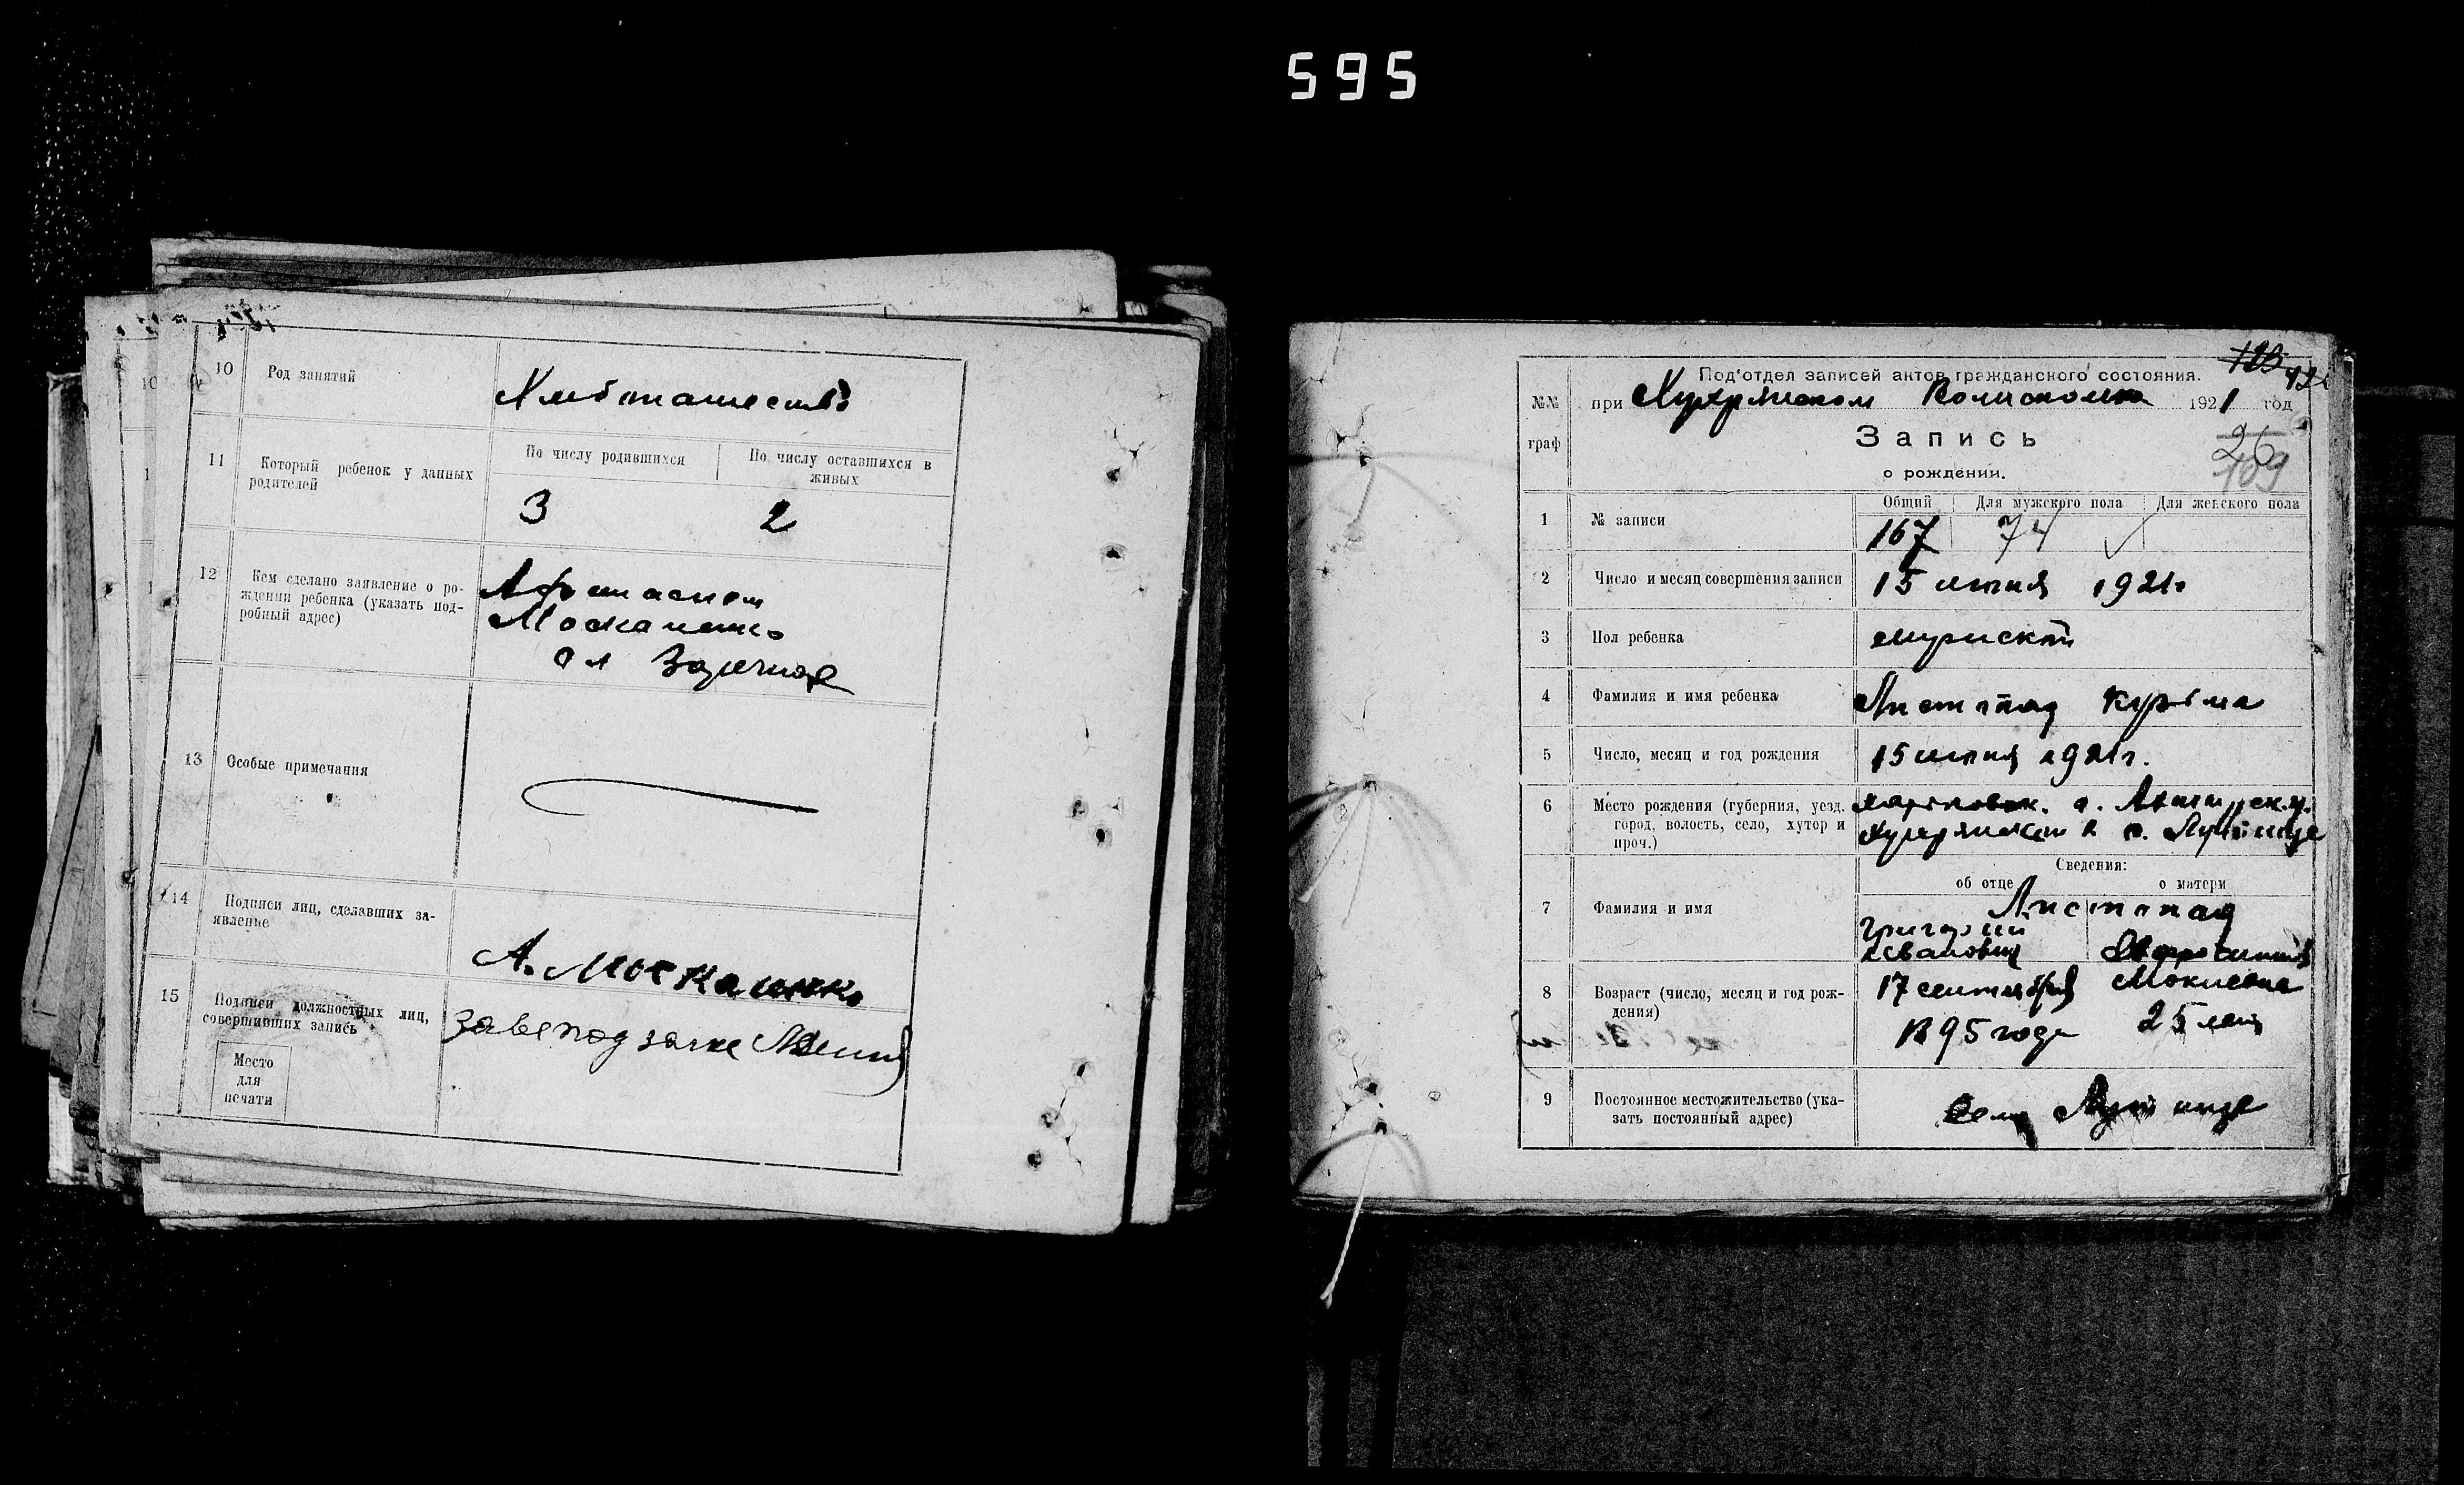 595
10 Род занятий
Хлебопашество
11 Который ребенок у данных
родителей
По числу родившихся
По числу оставшихся в
живых
3 2
12 Кем сделано заявление о ро-
ждении ребенка (указать под-
робный адрес)
Афанасием
Москаленко
сл Заречное
13 Особые примечания
14 Подписи лиц, сделавших за-
явление
А. Москаленко
15 Подписи должностных лиц,
совершивших запись
Завеподзагсе
Место
для
печати
№№
граф
Под'отдел записей актов гражданского состояния.
при Хухрянском Волисполкоме 1921 год
Запись
о рождении.
26
109
1 № записи
Общий Для мужского пола Для женского пола
167 74
2 Число и месяц совершения записи
15 июня 1921г
3 Пол ребенка
мужской
4 Фамилия и имя ребенка
Листопад Курьма
5 Число, месяц и год рождения
15 июня 1921г.
6 Место рождения (губерния, уезд,
город, волость, село, хутор и
проч.)
Харьковск. г. Ахтырск. у.
Хухрянской в с. Лутище
Сведения:
об отце о матери
7 Фамилия и имя
Листопад
Григорий
Иванович
Мокиевна
8 Возраст (число, месяц и год рож-
дения)
17 сентября
1895 года
25 лет
9 Постоянное местожительство (ука-
зать постоянный адрес)
Село Лутище